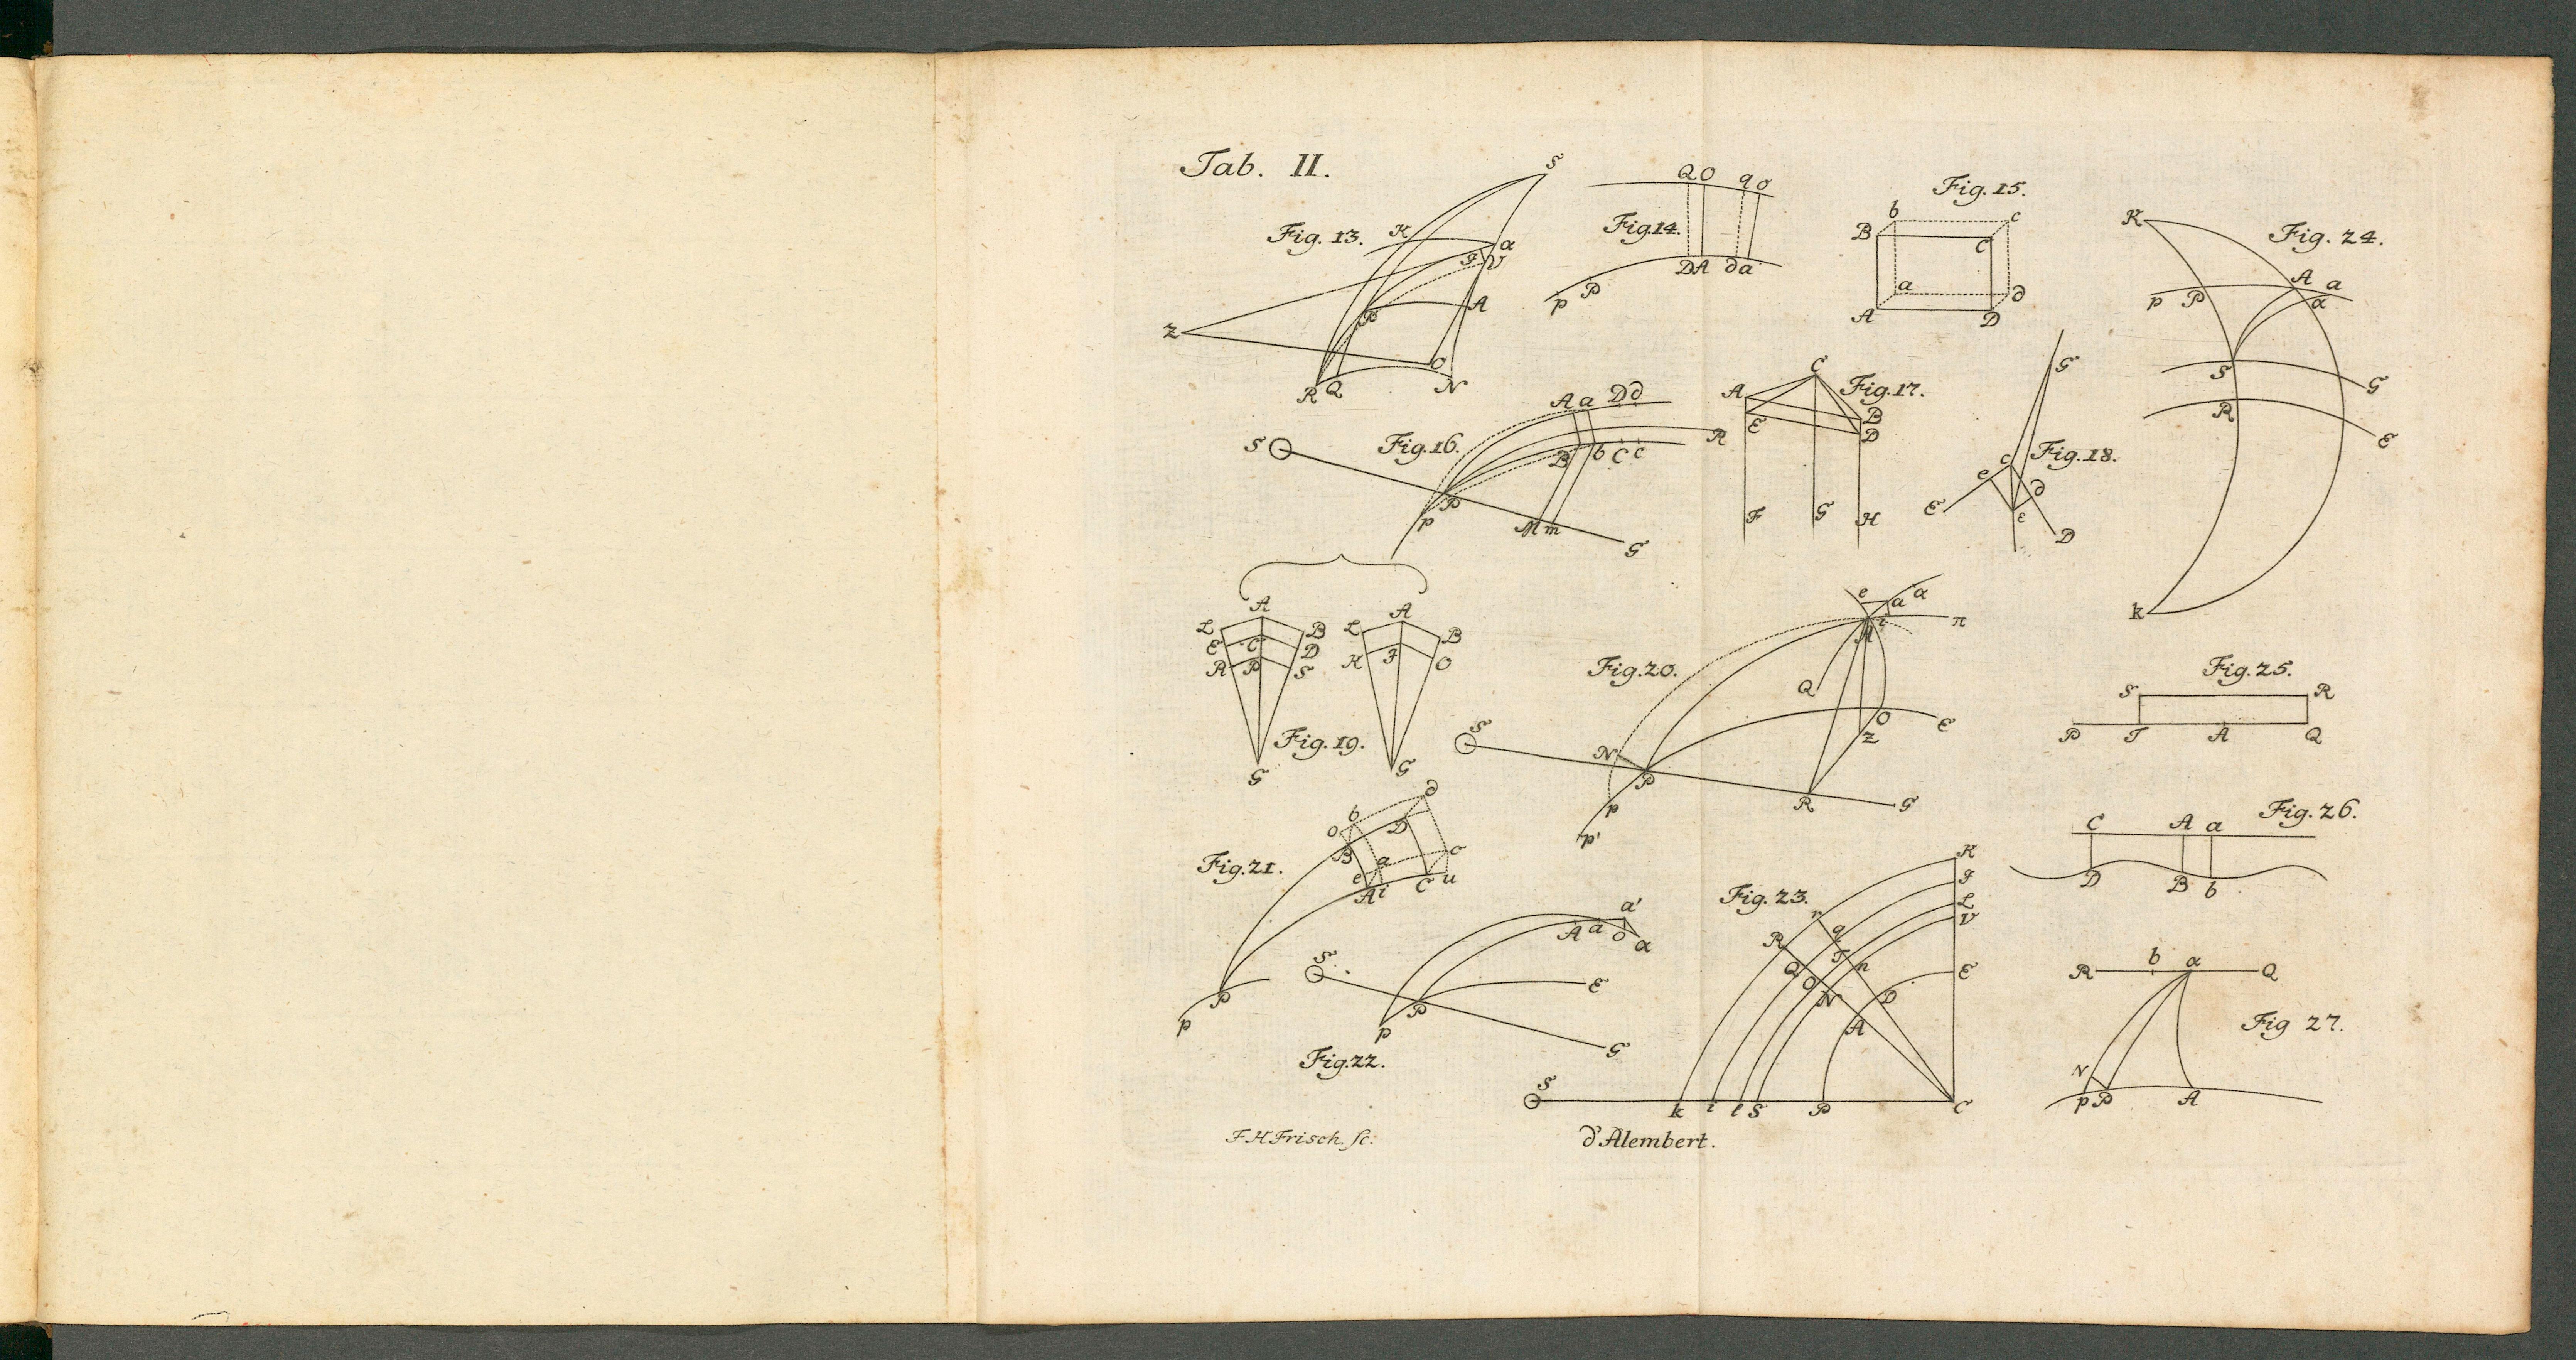 Tab. II.
S
Fig. 13.
K
a
F V
P
A
Z
O
R Q
N
Q O q o
Fig. 14.
D A d a
p P
Fig. 15.
b c
B C
a d
A D
S
Fig. 16.
A a D d
R
B b C c
P
p
M m
G
C
A
Fig. 17.
E
B
D
F G H
G
c
Fig. 18.
e
d
E
e
D
K
Fig. 24.
A a
p P α
S G
R E
k
A A
L B L B
E C D
K F O
R P S
Fig. 19.
G G
e a α
i π
A
Fig. 20.
Q
S
O E
N Z
P
p R G
p'
Fig. 25.
S R
P T A Q
d
b
o D
B
Fig. 21.
a c
e
A i C u
P
p
Fig. 26.
C A a
D B b
S
a'
A a o α
E
P
p
G
Fig. 22.
K
Fig. 23.
I
L
r V
R q
T
Q n
O E
N D
A
S
k i l S P C
R b α Q
Fig 27.
N
p P A
F H Frisch. sc:
d'Alembert.